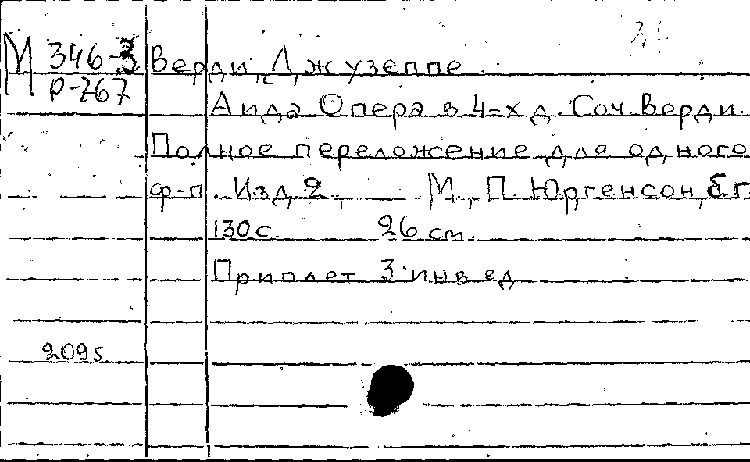 М 346-3 Верди, Джузеппе
Р-267
Аида Опера в 4-х д. Соч. Верди.
Полное переложение для одного
ф-п. Изд. 2. М., П. Юргенсон, б.г.
130 с. 26 см.
Приплет 3 инв. ед.
209s.